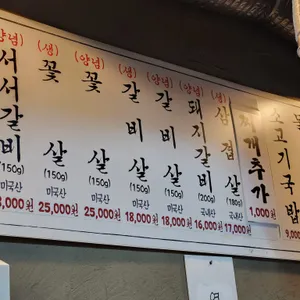 (양념)
서서갈비
(150g)
미국산
(생)
꽃살
(150g)
미국산
25,000원
(양념)
꽃살
(150g)
미국산
25,000원
(생)
갈비살
(150g)
미국산
18,000원
(양념)
갈비살
(150g)
미국산
18,000원
(양념)
돼지갈비
(200g)
국내산
16,000원
(생)
삼겹살
(180g)
국내산
17,000원
찌개추가
1,000원
소고기국밥
9,000